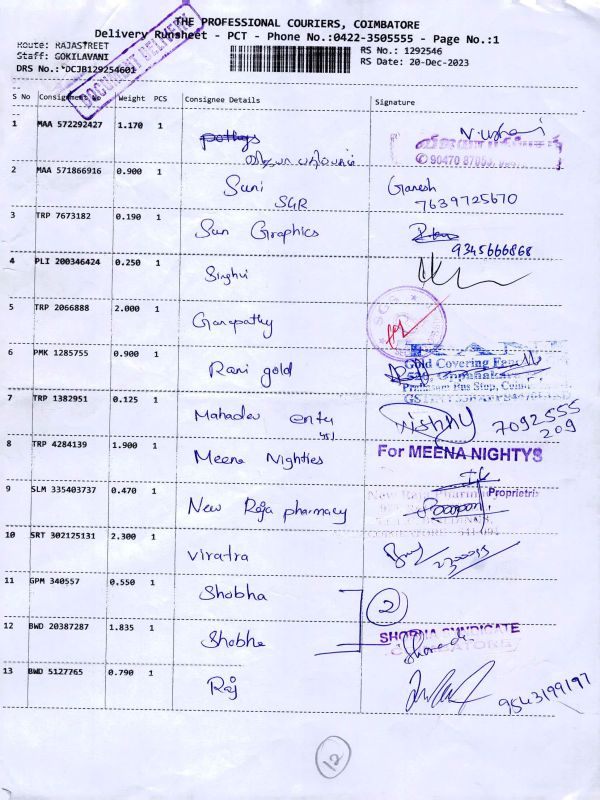 THE PROFESSIONAL COURIERS, COIMBATORE
Delivery Runsheet - PCT - Phone No.:0422-3505555 - Page No.:1
Route: RAJASTREET
Staff: GOKILAVANI
DRS No.: DCJB129254601
RS No.: 1292546
RS Date: 20-Dec-2023
DOCUMENT DELIVERY
S No Consignment No Weight PCS Consignee Details Signature
1 MAA 572292427 1.170 1 pothys
90470
2 MAA 571866916 0.900 1 Suni SGR Ganesh
7639725670
3 TRP 7673182 0.190 1 Sun Graphics
9345666868
4 PLI 200346424 0.250 1 Singhvi
5 TRP 2066888 2.000 1 Ganapathy
6 PMK 1285755 0.900 1 Rani gold
Gold Covering
7 TRP 1382951 0.125 1 Mahadev enty Vishnu 7092555
209
8 TRP 4284139 1.900 1 Meena Nighties For MEENA NIGHTYS
Proprietrix
9 SLM 335403737 0.470 1 New Raja pharmacy New Raja Pharmacy
10 SRT 302125131 2.300 1 viratra
11 GPM 340557 0.550 1 Shobha 2
12 BWD 20387287 1.835 1 Shobha SHOBHA SYNDICATE
13 BWD 5127765 0.790 1 Raj 9543199197
12